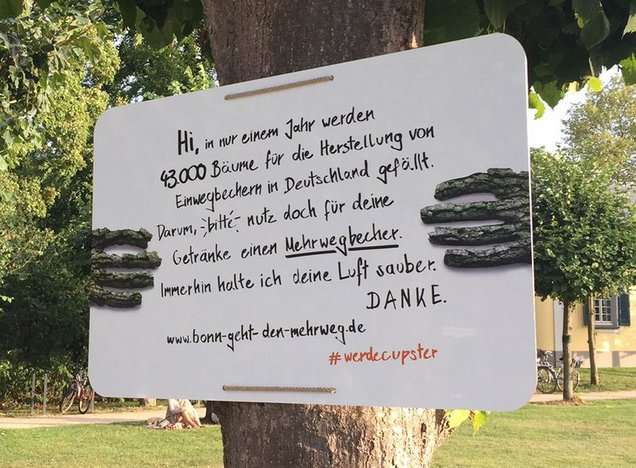 Hi, in nur einem Jahr werden
43.000 Bäume für die Herstellung von
Einwegbechern in Deutschland gefällt.
Darum, -bitte- nutz doch für deine
Getränke einen Mehrwegbecher.
Immerhin halte ich deine Luft sauber.
DANKE.
www.bonn-geht-den-mehrweg.de
#werdecupster